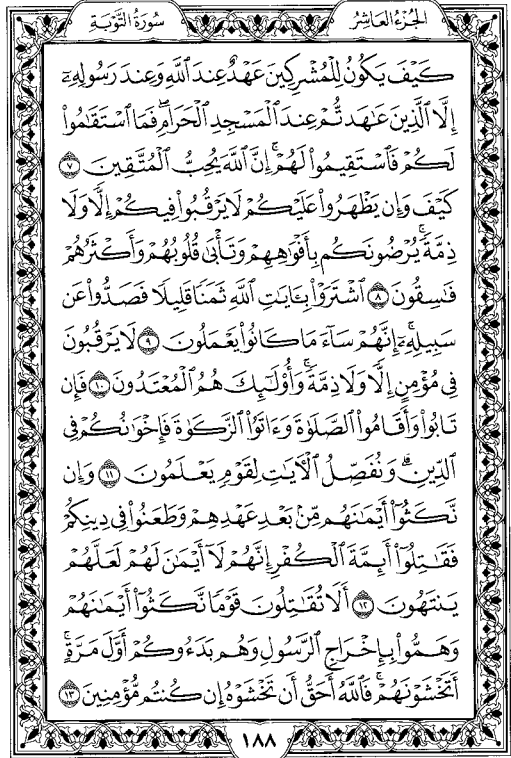 سُورَةُ التَّوْبَةِ
الجُزْءُ العَاشِرُ
كَيْفَ يَكُونُ لِلْمُشْرِكِينَ عَهْدٌ عِندَ ٱللَّهِ وَعِندَ رَسُولِهِۦٓ
إِلَّا ٱلَّذِينَ عَٰهَدتُّمْ عِندَ ٱلْمَسْجِدِ ٱلْحَرَامِ ۖ فَمَا ٱسْتَقَٰمُوا۟
لَكُمْ فَٱسْتَقِيمُوا۟ لَهُمْ ۚ إِنَّ ٱللَّهَ يُحِبُّ ٱلْمُتَّقِينَ ٧
كَيْفَ وَإِن يَظْهَرُوا۟ عَلَيْكُمْ لَا يَرْقُبُوا۟ فِيكُمْ إِلًّا وَلَا
ذِمَّةً ۚ يُرْضُونَكُم بِأَفْوَٰهِهِمْ وَتَأْبَىٰ قُلُوبُهُمْ وَأَكْثَرُهُمْ
فَٰسِقُونَ ٨ ٱشْتَرَوْا۟ بِـَٔايَٰتِ ٱللَّهِ ثَمَنًا قَلِيلًا فَصَدُّوا۟ عَن
سَبِيلِهِۦٓ ۚ إِنَّهُمْ سَآءَ مَا كَانُوا۟ يَعْمَلُونَ ٩ لَا يَرْقُبُونَ
فِى مُؤْمِنٍ إِلًّا وَلَا ذِمَّةً ۚ وَأُو۟لَٰٓئِكَ هُمُ ٱلْمُعْتَدُونَ ١٠ فَإِن
تَابُوا۟ وَأَقَامُوا۟ ٱلصَّلَوٰةَ وَءَاتَوُا۟ ٱلزَّكَوٰةَ فَإِخْوَٰنُكُمْ فِى
ٱلدِّينِ ۗ وَنُفَصِّلُ ٱلْءَايَٰتِ لِقَوْمٍ يَعْلَمُونَ ١١ وَإِن
نَّكَثُوٓا۟ أَيْمَٰنَهُم مِّنۢ بَعْدِ عَهْدِهِمْ وَطَعَنُوا۟ فِى دِينِكُمْ
فَقَٰتِلُوٓا۟ أَئِمَّةَ ٱلْكُفْرِ ۙ إِنَّهُمْ لَآ أَيْمَٰنَ لَهُمْ لَعَلَّهُمْ
يَنتَهُونَ ١٢ أَلَا تُقَٰتِلُونَ قَوْمًا نَّكَثُوٓا۟ أَيْمَٰنَهُمْ
وَهَمُّوا۟ بِإِخْرَاجِ ٱلرَّسُولِ وَهُم بَدَءُوكُمْ أَوَّلَ مَرَّةٍ ۚ
أَتَخْشَوْنَهُمْ ۚ فَٱللَّهُ أَحَقُّ أَن تَخْشَوْهُ إِن كُنتُم مُّؤْمِنِينَ ١٣
١٨٨